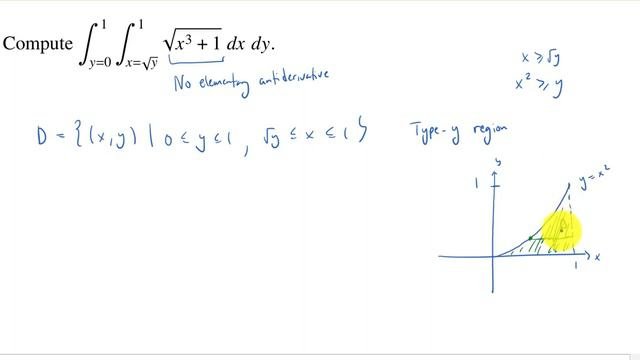 Compute ∫_{y=0}^{1} ∫_{x=√y}^{1} √(x³ + 1) dx dy.
No elementary antiderivative
x ≥ √y
x² ≥ y
D = { (x,y) | 0 ≤ y ≤ 1 , √y ≤ x ≤ 1 }
Type-y region
y
1
y = x²
D
1
x